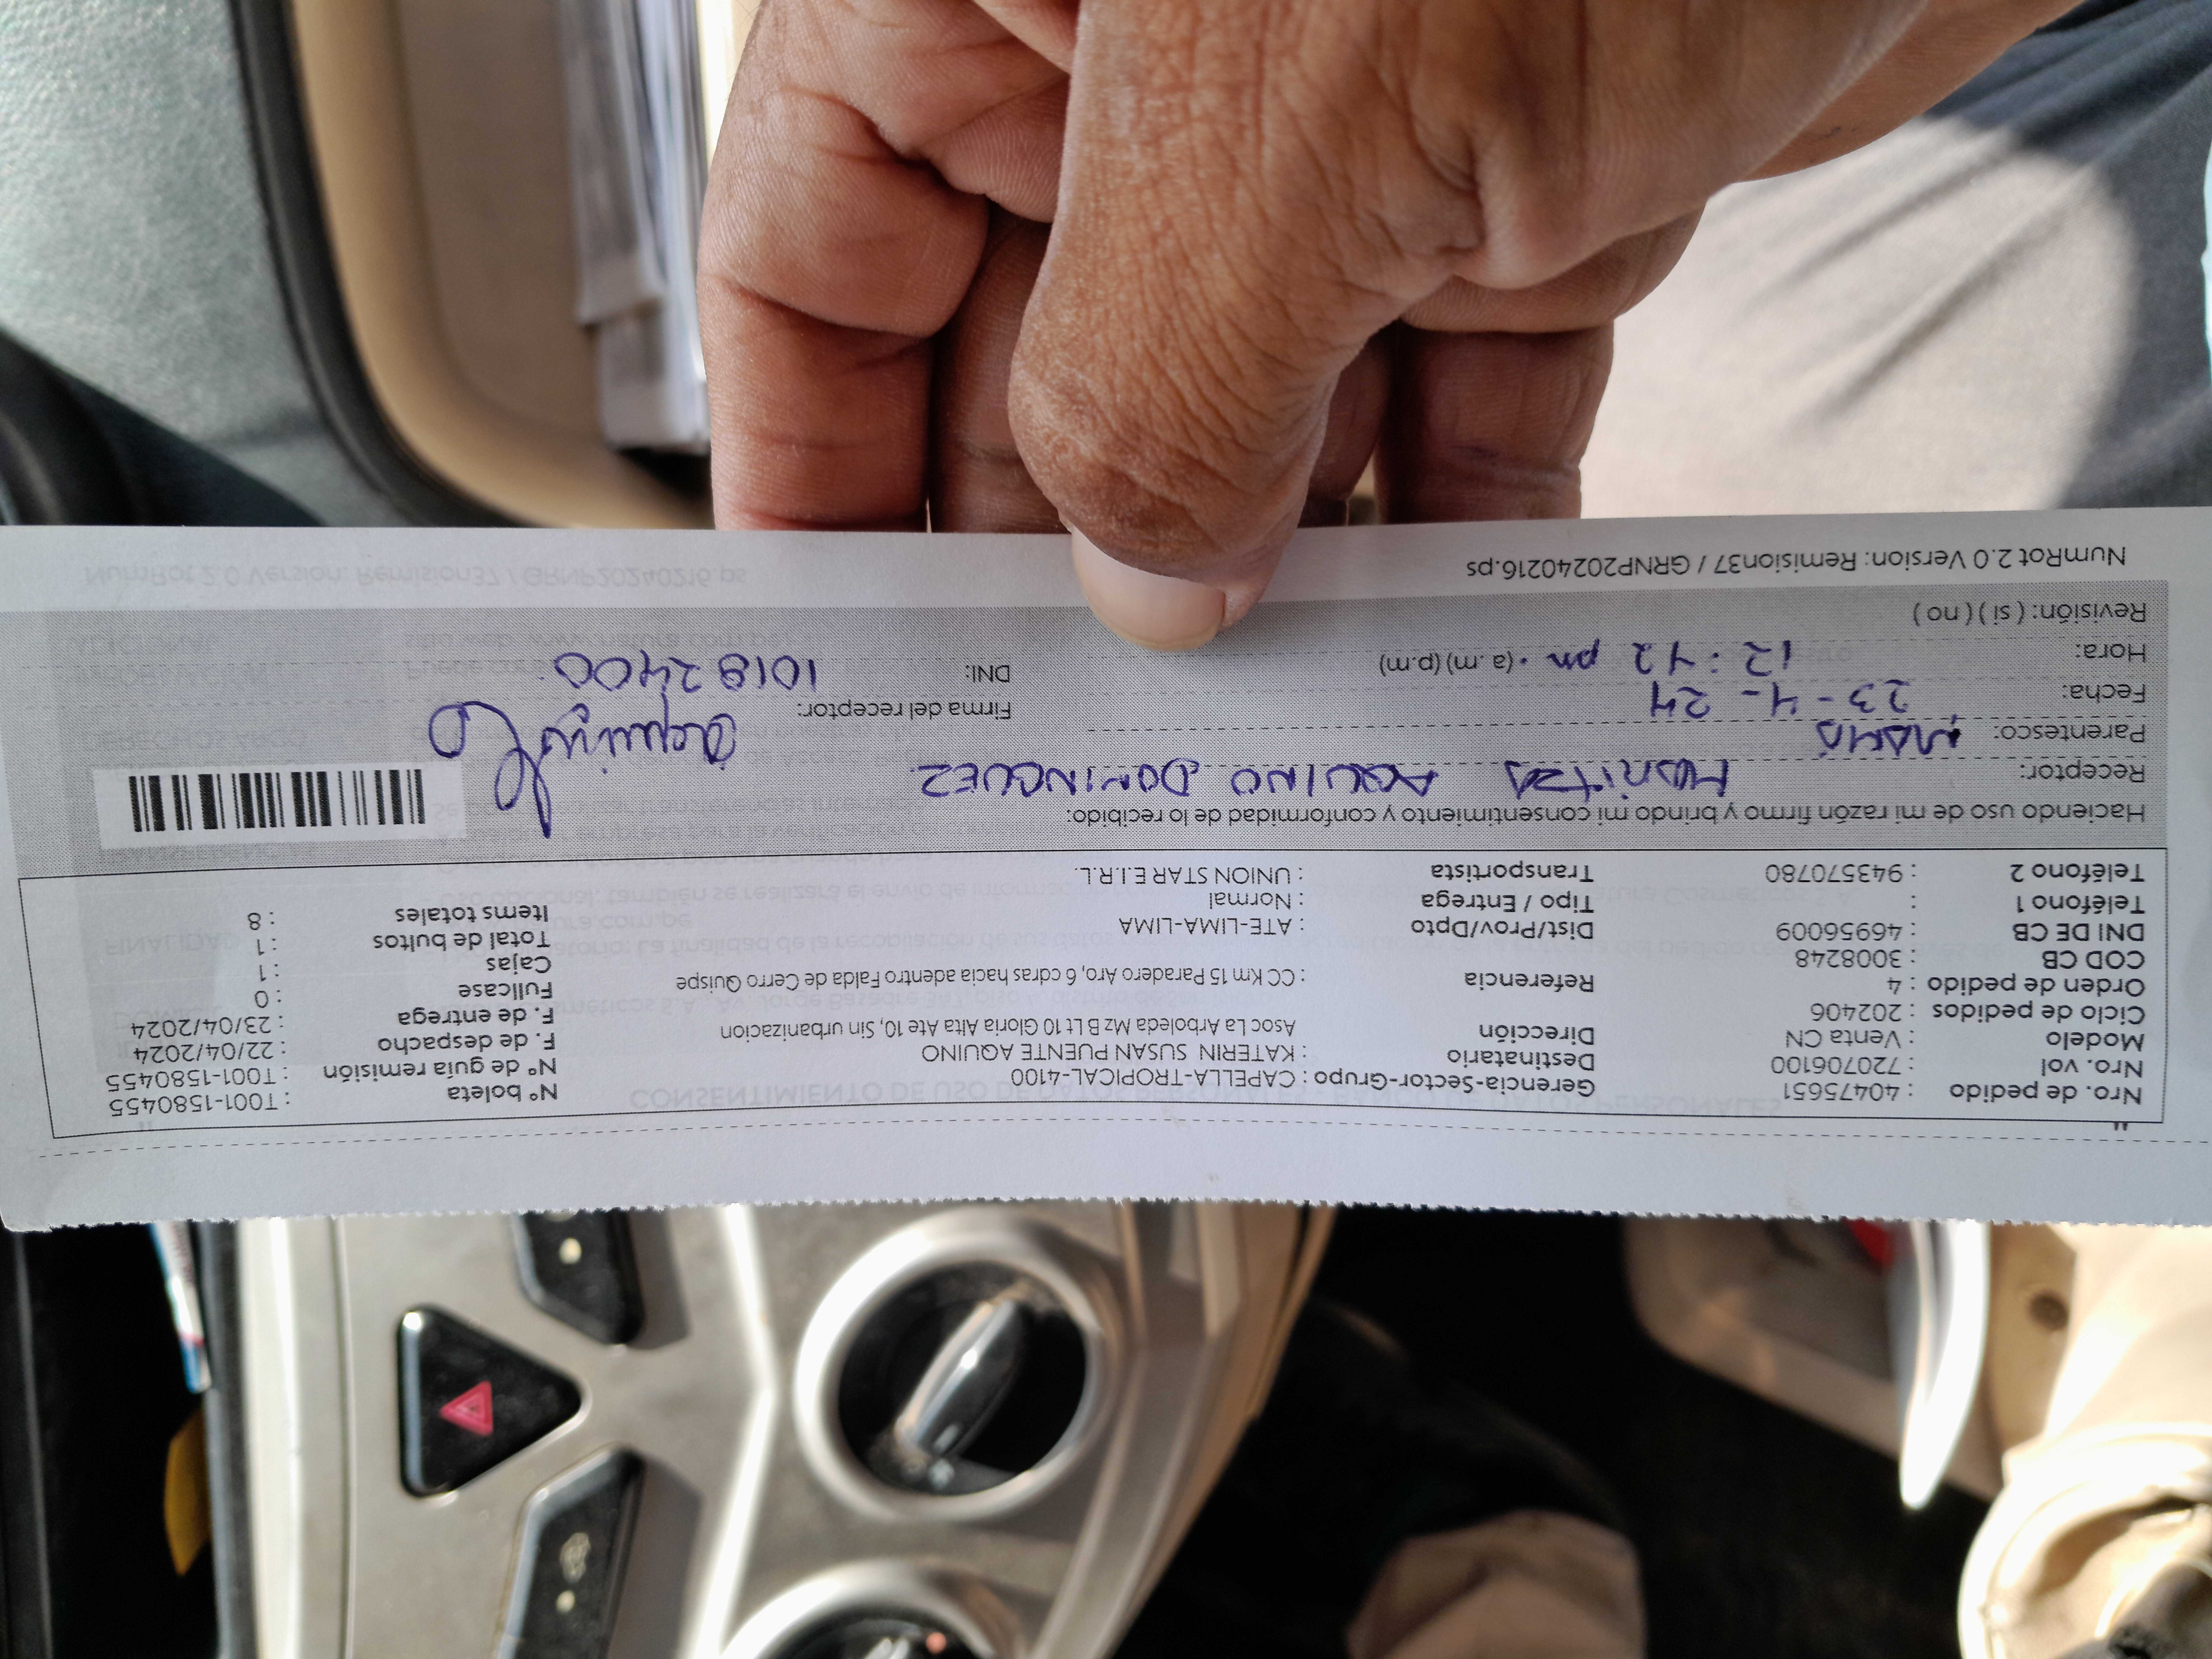 Nro. de pedido : 40475651
Nro. vol : 720706100
Modelo : Venta CN
Ciclo de pedidos : 202406
Orden de pedido : 4
COD CB : 3008248
DNI DE CB : 46956009
Teléfono 1 :
Teléfono 2 : 943570780
Gerencia-Sector-Grupo : CAPELLA-TROPICAL-4100
Destinatario : KATERIN SUSAN PUENTE AQUINO
Dirección Asoc La Arboleda Mz B Lt 10 Gloria Alta Ate 10, Sin urbanizacion
Referencia : CC Km 15 Paradero Aro, 6 cdras hacia adentro Falda de Cerro Quispe
Dist/Prov/Dpto : ATE-LIMA-LIMA
Tipo / Entrega : Normal
Transportista : UNION STAR E.I.R.L.
N° boleta : T001-1580455
N° de guía remisión : T001-1580455
F. de despacho : 22/04/2024
F. de entrega : 23/04/2024
Fullcase : 0
Cajas : 1
Total de bultos : 1
Items totales : 8
Haciendo uso de mi razón firmo y brindo mi consentimiento y conformidad de lo recibido:
Receptor: MARITZA AQUINO DOMINGUEZ
Parentesco: MAMÁ
Fecha: 23-4-24
Hora: 12:42 pm . (a.m) (p.m)
Revisión: ( si ) ( no )
Firma del receptor:
DNI: 10182400
NumRot 2.0 Version: Remision37 / GRNP20240216.ps